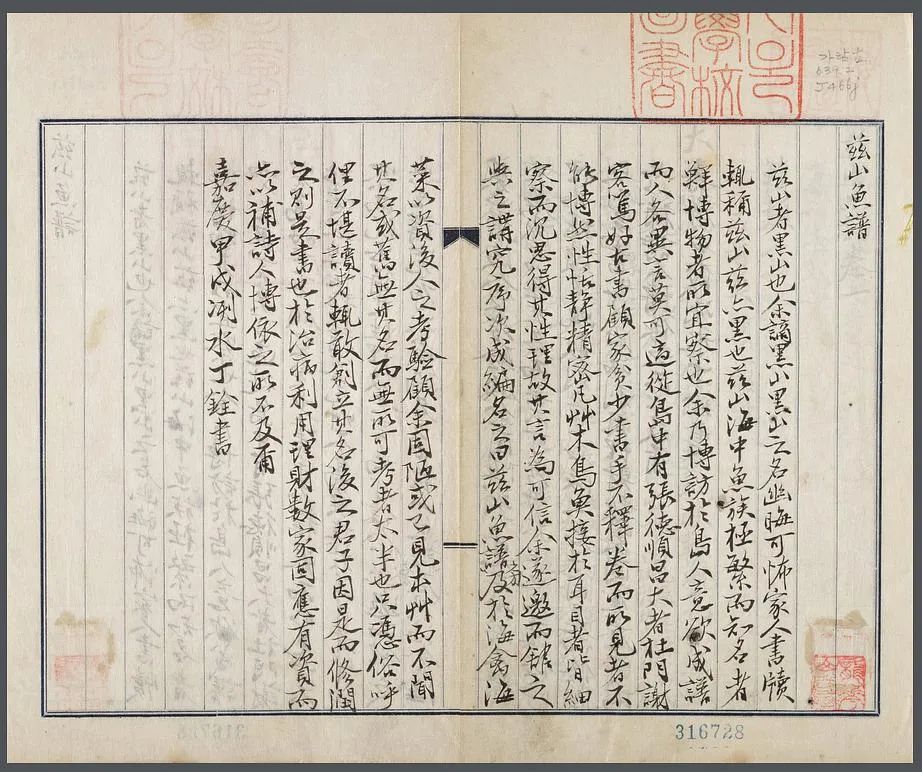 가람古
639.2
J466j
茲山魚譜
茲山者黑山也余謫黑山黑山之名幽晦可怖家人書牘
輒稱茲山茲亦黑也茲山海中魚族極繁而知名者
鮮博物者所宜察也余乃博訪於島人意欲成譜
而人各異言莫可適從島中有張德順昌大者杜門謝
客篤好古書顧家貧少書手不釋卷而所見者不
能博然性恬靜精密凡艸木鳥魚接於耳目者皆細
察而沉思得其性理故其言為可信余遂邀而舘之
與之講究序次成編名之曰茲山魚譜旁及於海禽海
菜以資後人之考驗顧余固陋或已見本艸而不聞
其名或舊無其名而無所可考者太半也只憑俗呼
俚不堪讀者輒敢創立其名後之君子因是而修潤
之則是書也於治病利用理財數家固應有資而
亦以補詩人博依之所不及爾
嘉慶甲戌洌水丁銓書
316728